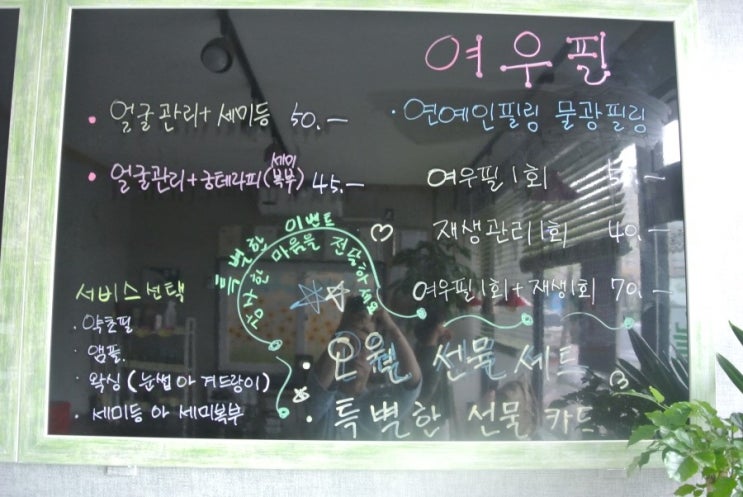 여우필
• 얼굴관리 + 세미등 50.—
• 얼굴관리 + 궁테라피 (세미복부) 45.—
• 연예인필링 물광필링
여우필 1회
재생관리 1회 40.—
여우필 1회 + 재생 1회 70.—
특별한 이벤트
감사한 마음을 전달하세요
서비스 선택
• 약초필
• 앰플.
• 왁싱 (눈썹 or 겨드랑이)
• 세미등 or 세미복부
• 오월 선물세트
• 특별한 선물 카드